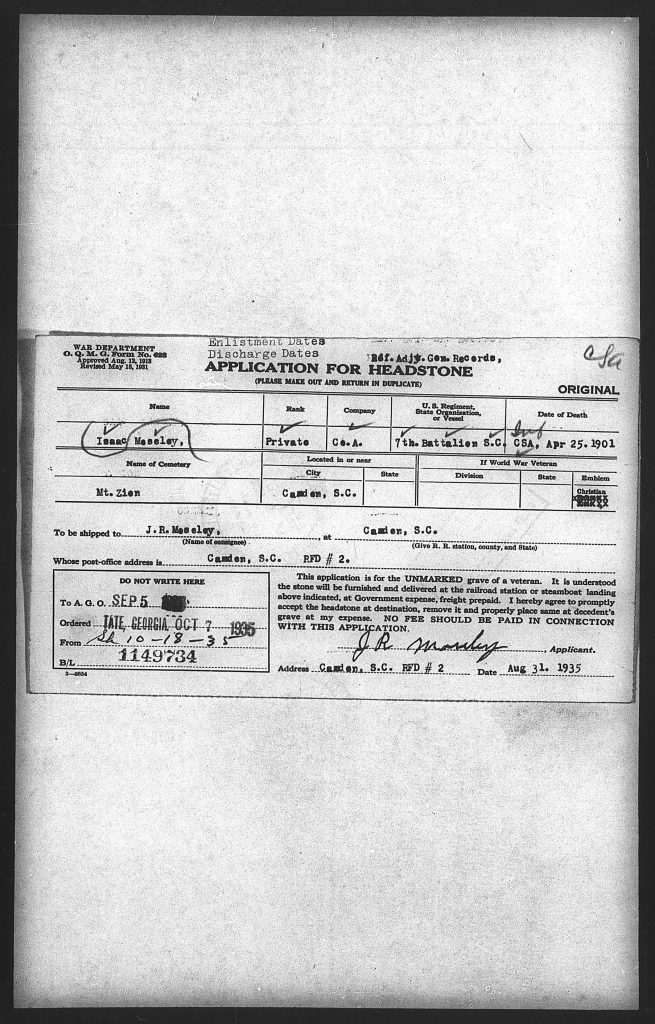 WAR DEPARTMENT
O. Q. M. G. Form No. 623
Approved Aug. 12, 1913
Revised May 18, 1931
Enlistment Dates
Discharge Dates
Ref. Adjt. Gen. Records,
CSA
APPLICATION FOR HEADSTONE
(PLEASE MAKE OUT AND RETURN IN DUPLICATE)
ORIGINAL
Name Rank Company U. S. Regiment, State Organization, or Vessel Date of Death
Isaac Moseley, Private Co.A. 7th. Battalion S.C. Inf CSA, Apr 25.1901
Name of Cemetery Located in or near If World War Veteran
City State Division State Emblem
Mt. Zion Camden, S.C. Christian
To be shipped to J.R.Moseley, at Camden, S.C.
(Name of consignee) (Give R. R. station, county, and State)
Whose post-office address is Camden, S.C. RFD # 2.
DO NOT WRITE HERE
To A. G. O. SEP 5
Ordered TATE, GEORGIA, OCT 7 1935
From 10-18-35
1149734
B/L
3—6654
This application is for the UNMARKED grave of a veteran. It is understood
the stone will be furnished and delivered at the railroad station or steamboat landing
above indicated, at Government expense, freight prepaid. I hereby agree to promptly
accept the headstone at destination, remove it and properly place same at decedent's
grave at my expense. NO FEE SHOULD BE PAID IN CONNECTION
WITH THIS APPLICATION.
J R Mosely, Applicant.
Address Camden, S.C. RFD # 2 Date Aug 31. 1935